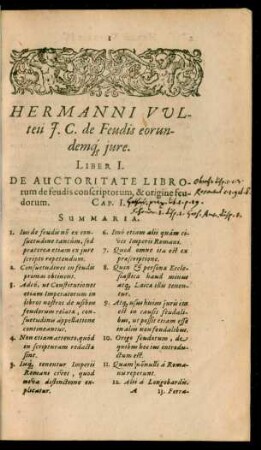 1
HERMANNI VVL-
teii J. C. de Feudis eorun-
demq́; jure.
LIBER I.
DE AUCTORITATE LIBRO-
rum de feudis conscriptorum, & origine feu-
dorum. CAP. I.
SUMMARIA.
1. Ius de feudis nō ex con-
suetudine tantùm, sed
praeterea etiam ex jure
scripto repetendum.
2. Consuetudines in feudis
primas obtinent.
3. Adeò, ut Constitutiones
etiam Imperatorum in
libros nostros de usibus
feudorum relatae, con-
suetudinis appellatione
contineantur.
4. Non etiam attentè, quòd
in scripturam redacta
sint.
5. Iurē tenentur Imperii
Romani cives, quod
nova distinctione ex-
plicatur.
6. Imò etiam alii quàm ci-
ves Imperii Romani.
7. Quod omne ita est ex
praescriptione.
8. Quin & persona Eccle-
siastica haud minùs
atq; Laica illis tenen-
tur.
9. Atq; usus horum juris cùm
est in causis feudali-
bus, ut possit etiam esse
in aliis non feudalibus.
10. Origo feudorum, de
quibus hic introdu-
ctum est.
11. Quam nōnulli à Roma-
nis repetunt.
12. Alii à Longobardis.
A
13. Ferra-